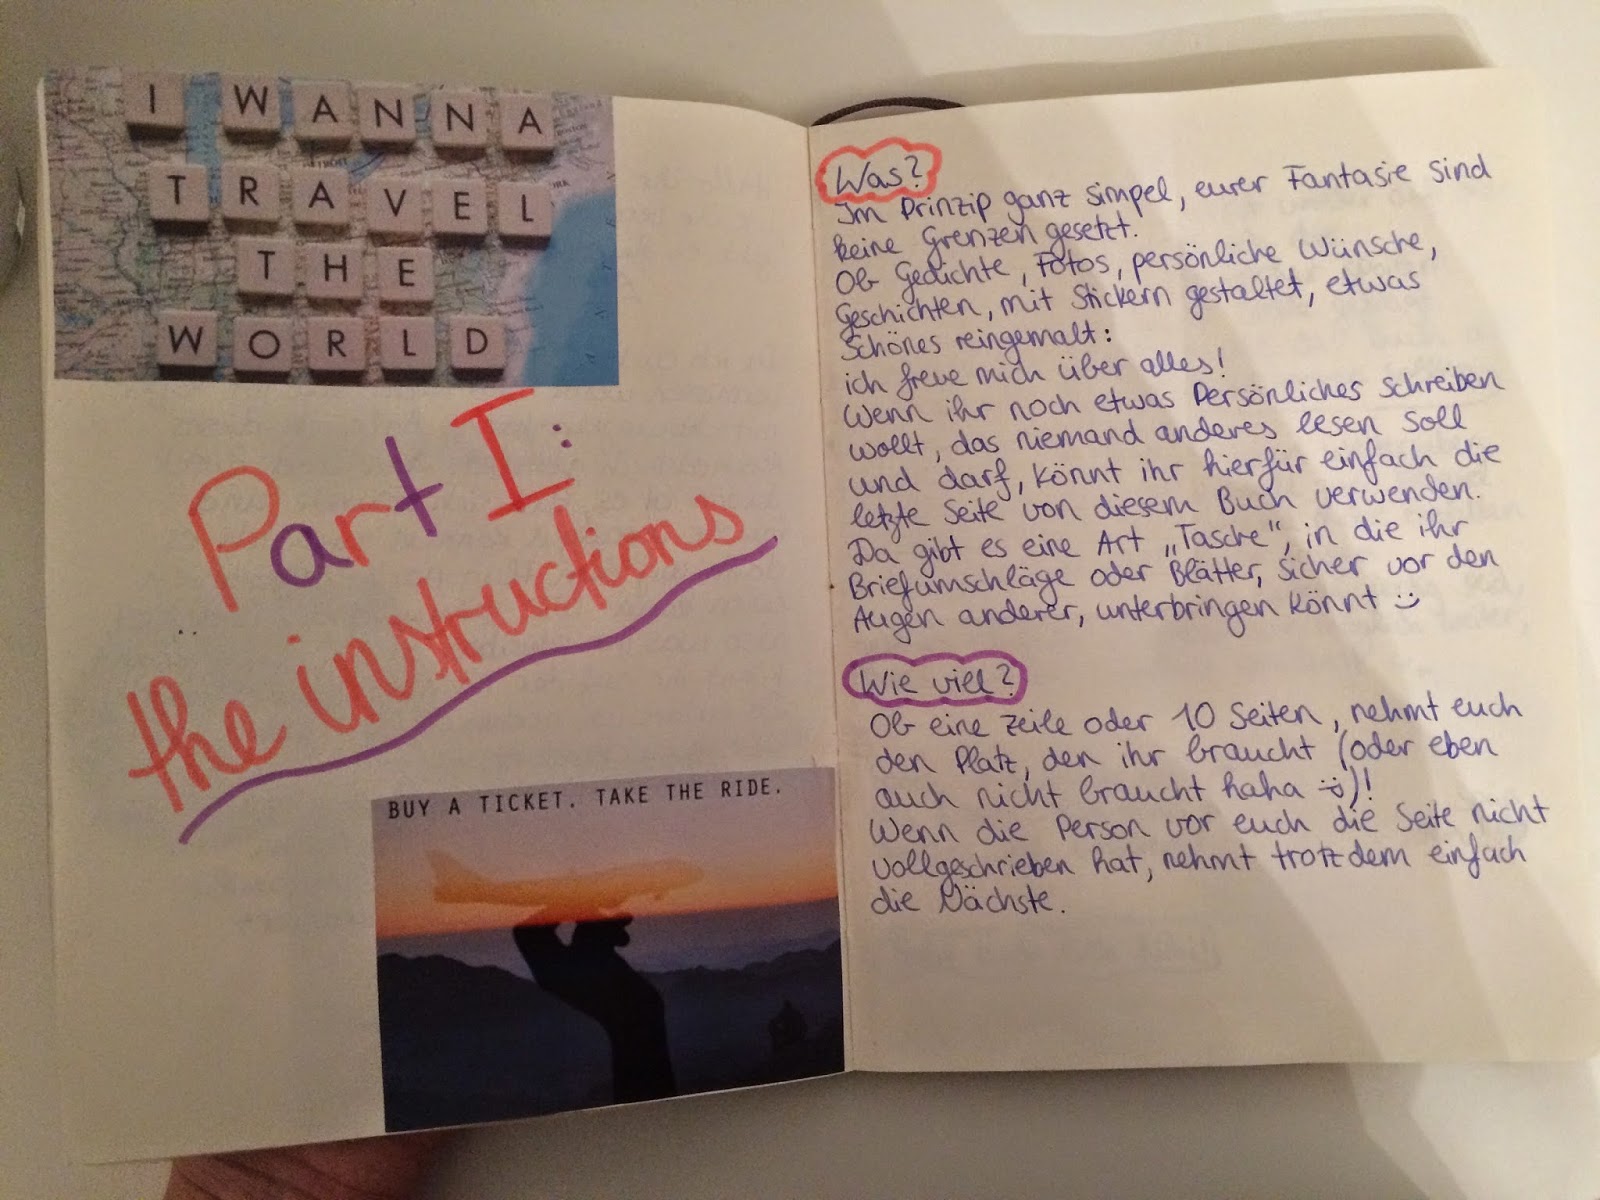 I WANNA
TRAVEL
THE
WORLD
Part I:
the instructions
BUY A TICKET. TAKE THE RIDE.
Was?
Im Prinzip ganz simpel, eurer Fantasie sind
keine Grenzen gesetzt.
Ob Gedichte, Fotos, persönliche Wünsche,
Geschichten, mit Stickern gestaltet, etwas
Schönes reingemalt:
ich freue mich über alles!
Wenn ihr noch etwas Persönliches schreiben
wollt, das niemand anderes lesen soll
und darf, könnt ihr hierfür einfach die
letzte Seite von diesem Buch verwenden.
Da gibt es eine Art „Tasche“, in die ihr
Briefumschläge oder Blätter, sicher vor den
Augen anderer, unterbringen könnt :)
Wie viel?
Ob eine Zeile oder 10 Seiten, nehmt euch
den Platz, den ihr braucht (oder eben
auch nicht braucht haha =))!
Wenn die Person vor euch die Seite nicht
vollgeschrieben hat, nehmt trotzdem einfach
die Nächste.